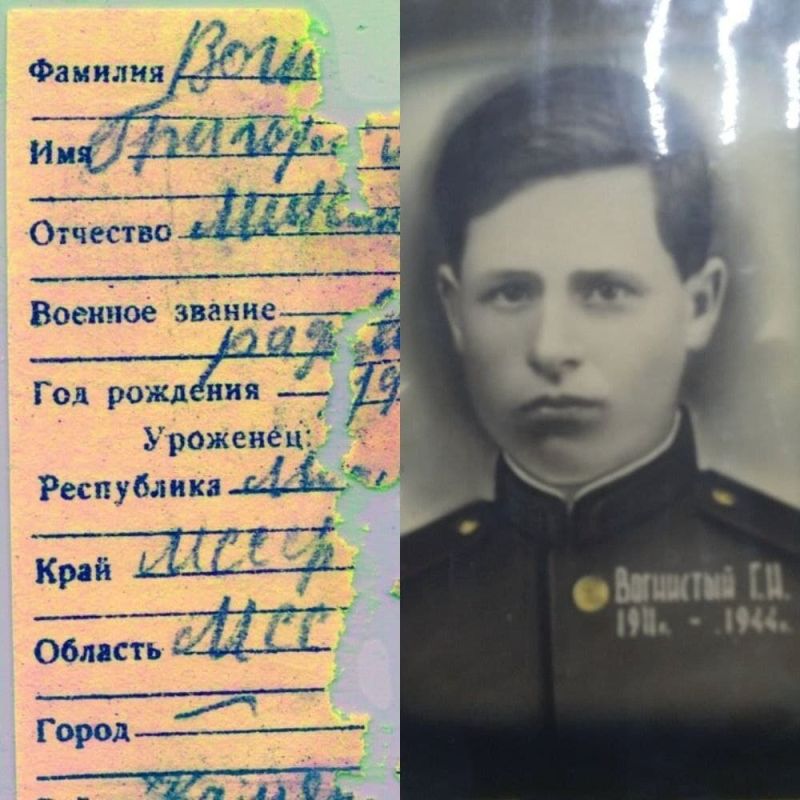 Фамилия Вогн
Имя Григори
Отчество
Военное звание
ряд
Год рождения 19
Уроженец:
Республика
Край МССР
Область МСС
Город —
Вогнистый Г.И.
1911г. - 1944г.